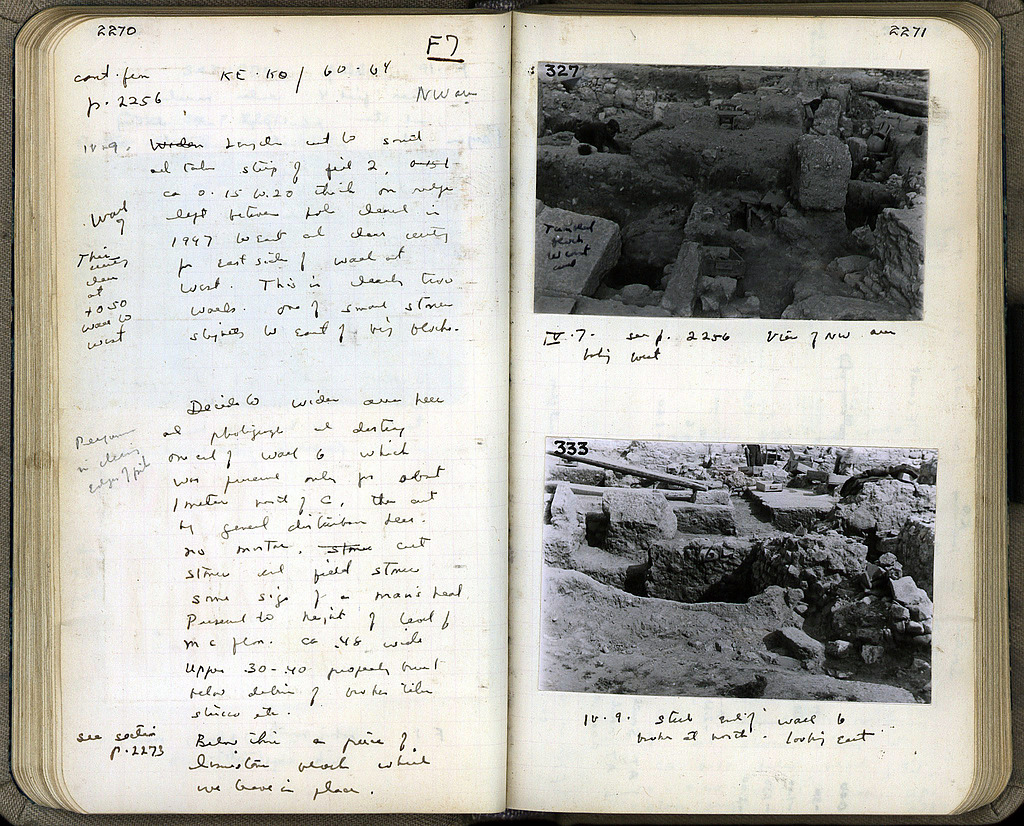 2270
F7
cont. from KE-KO / 60-64
p. 2256 NW area
IV.9. Widen cut to south
and take strip of fill 2,
ca 0.15 to .20 thick on ridge
left between cleared in
1947 to east and clear
for east side of wall at
west. This is clearly two
walls. one of small stones
slightly to East of big blocks.
Wall
of
Third
century
clear
at
+0.50
wall to
west
Decide to widen area here
and photograph and destroy
one end of wall 6 which
was preserved only for about
1 meter north of C, then cut
by general disturbance here.
no mortar, stones cut
stones and field stones
some sign of a man's head
Preserved to height of level of
floor. ca .48 wide
Upper .30-.40 properly built
below debris of broken tiles
stucco etc.
in clearing
edges of pit
see section
p. 2273
Below this a piece of
limestone block which
we leave in place.
2271
327
IV.7. see p. 2256 View of NW area
looking west
333
IV.9. stub end of wall 6
broken at north. looking east